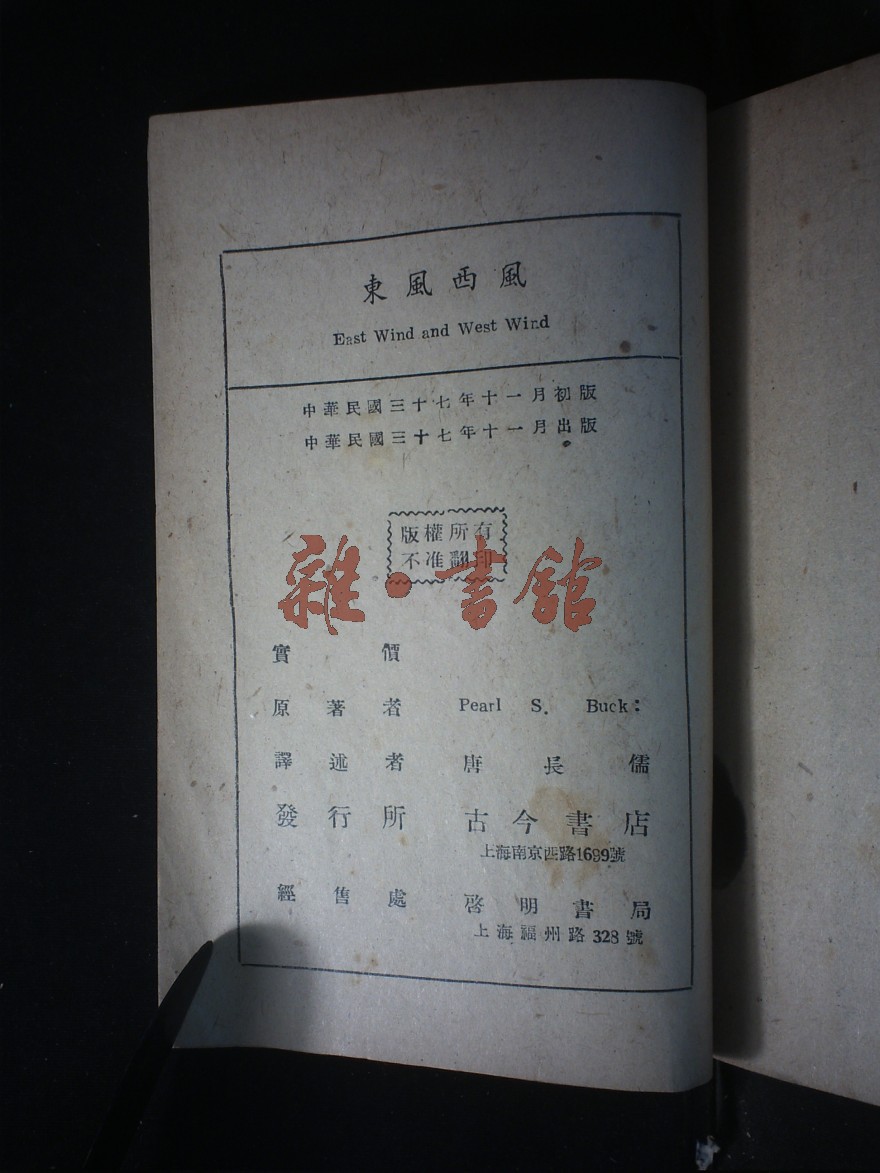 東風西風
East Wind and West Wind
中華民國三十七年十一月初版
中華民國三十七年十一月出版
版權所有
不准翻印
雜·書館
實價
原著者 Pearl S. Buck:
譯述者 唐長儒
發行所 古今書店
上海南京西路1699號
經售處 啓明書局
上海福州路328號